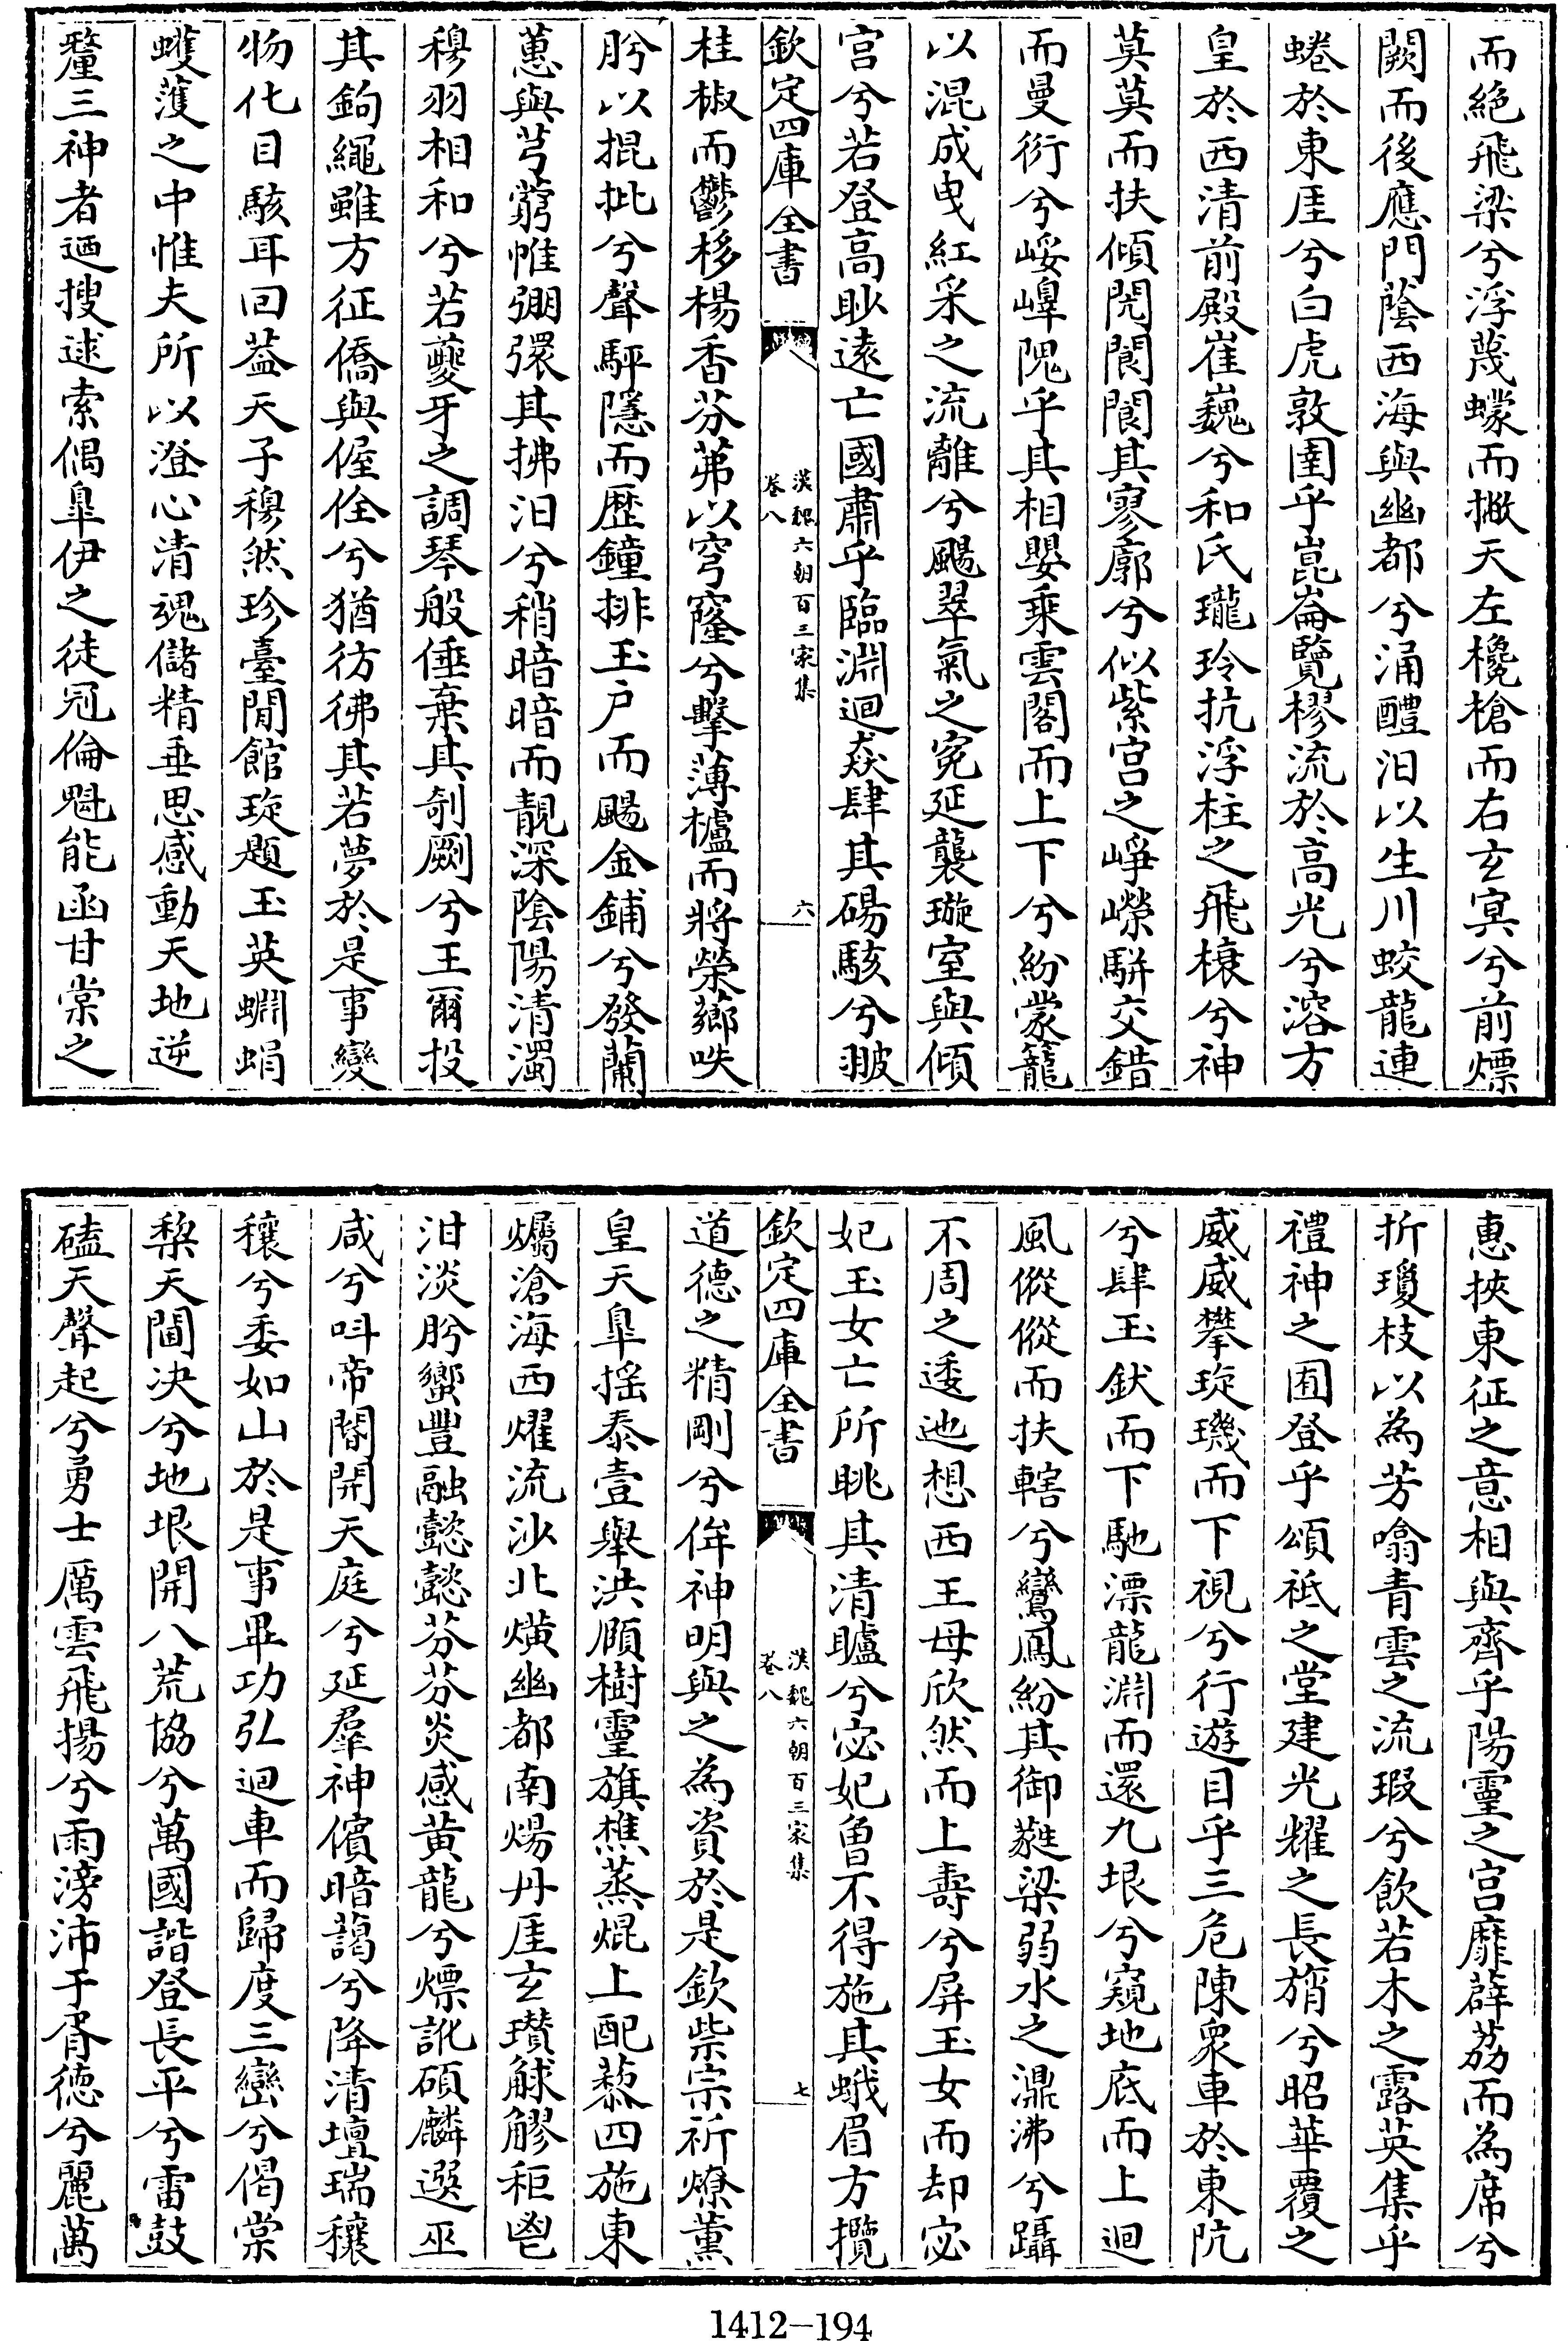 而絶飛梁兮浮蔑蠓而撇天左欃槍而右玄冥兮前熛
闕而後應門䕃西海與幽都兮涌醴汩以生川蛟龍連
蜷於東厓兮白虎敦圉乎崑崙覽樛流於高光兮溶方
皇於西清前殿崔巍兮和氏瓏玲抗浮柱之飛榱兮神
莫莫而扶傾閌閬閬其寥廓兮似紫宫之崢嶸駢交錯
而曼衍兮㟎嶵隗乎其相嬰乘雲閣而上下兮紛蒙籠
以混成曳紅采之流離兮颺翠氣之寃延襲璇室與傾
宫兮若登高眇逺亡國肅乎臨淵迴猋肆其碭駭兮翍
欽定四庫全書
漢魏六朝百三家集
卷八
六
桂椒而鬱栘楊香芬茀以穹窿兮擊薄櫨而將榮薌呹
肸以掍批兮聲駍隱而歴鐘排玉户而颺金鋪兮發蘭
蕙與芎藭帷弸彋其拂汩兮稍暗暗而靚深陰陽清濁
穆羽相和兮若夔牙之調琴般倕棄其剞劂兮王爾投
其鉤繩雖方征僑與偓佺兮猶彷彿其若夢於是事變
物化目駭耳回葢天子穆然珍臺閒館琁題玉英蜵蜎
蠖濩之中惟夫所以澄心清魂儲精垂思感動天地逆
釐三神者迺搜逑索偶臯伊之徒冠倫魁能函甘棠之
惠挾東征之意相與齊乎陽靈之宫靡薜荔而為席兮
折瓊枝以為芳噏青雲之流瑕兮飲若木之露英集乎
禮神之囿登乎頌祗之堂建光燿之長旓兮昭華覆之
威威攀琁璣而下視兮行遊目乎三危陳衆車於東阬
兮肆玉釱而下馳漂龍淵而還九垠兮窺地底而上迴
風傱傱而扶轄兮鸞鳳紛其御蕤梁弱水之濎沸兮躡
不周之逶迆想西王母欣然而上壽兮屏玉女而却宓
妃玉女亡所眺其清矑兮宓妃曾不得施其蛾眉方攬
欽定四庫全書
漢魏六朝百三家集
卷八
七
道德之精剛兮侔神明與之為資於是欽柴宗祈燎薰
皇天臯揺泰壹舉洪頤樹靈旗樵蒸焜上配藜四施東
爥滄海西燿流沙北爌幽都南煬丹厓玄瓚觩䚧秬鬯
泔淡肸蠁豐融懿懿芬芬炎感黄龍兮熛訛碩麟選巫
咸兮呌帝閽開天庭兮延羣神儐暗藹兮降清壇瑞穰
穰兮委如山於是事畢功弘迴車而歸度三巒兮偈棠
棃天閫决兮地垠開八荒協兮萬國諧登長平兮雷鼓
磕天聲起兮勇士厲雲飛揚兮雨滂沛于胥徳兮麗萬
1412-194